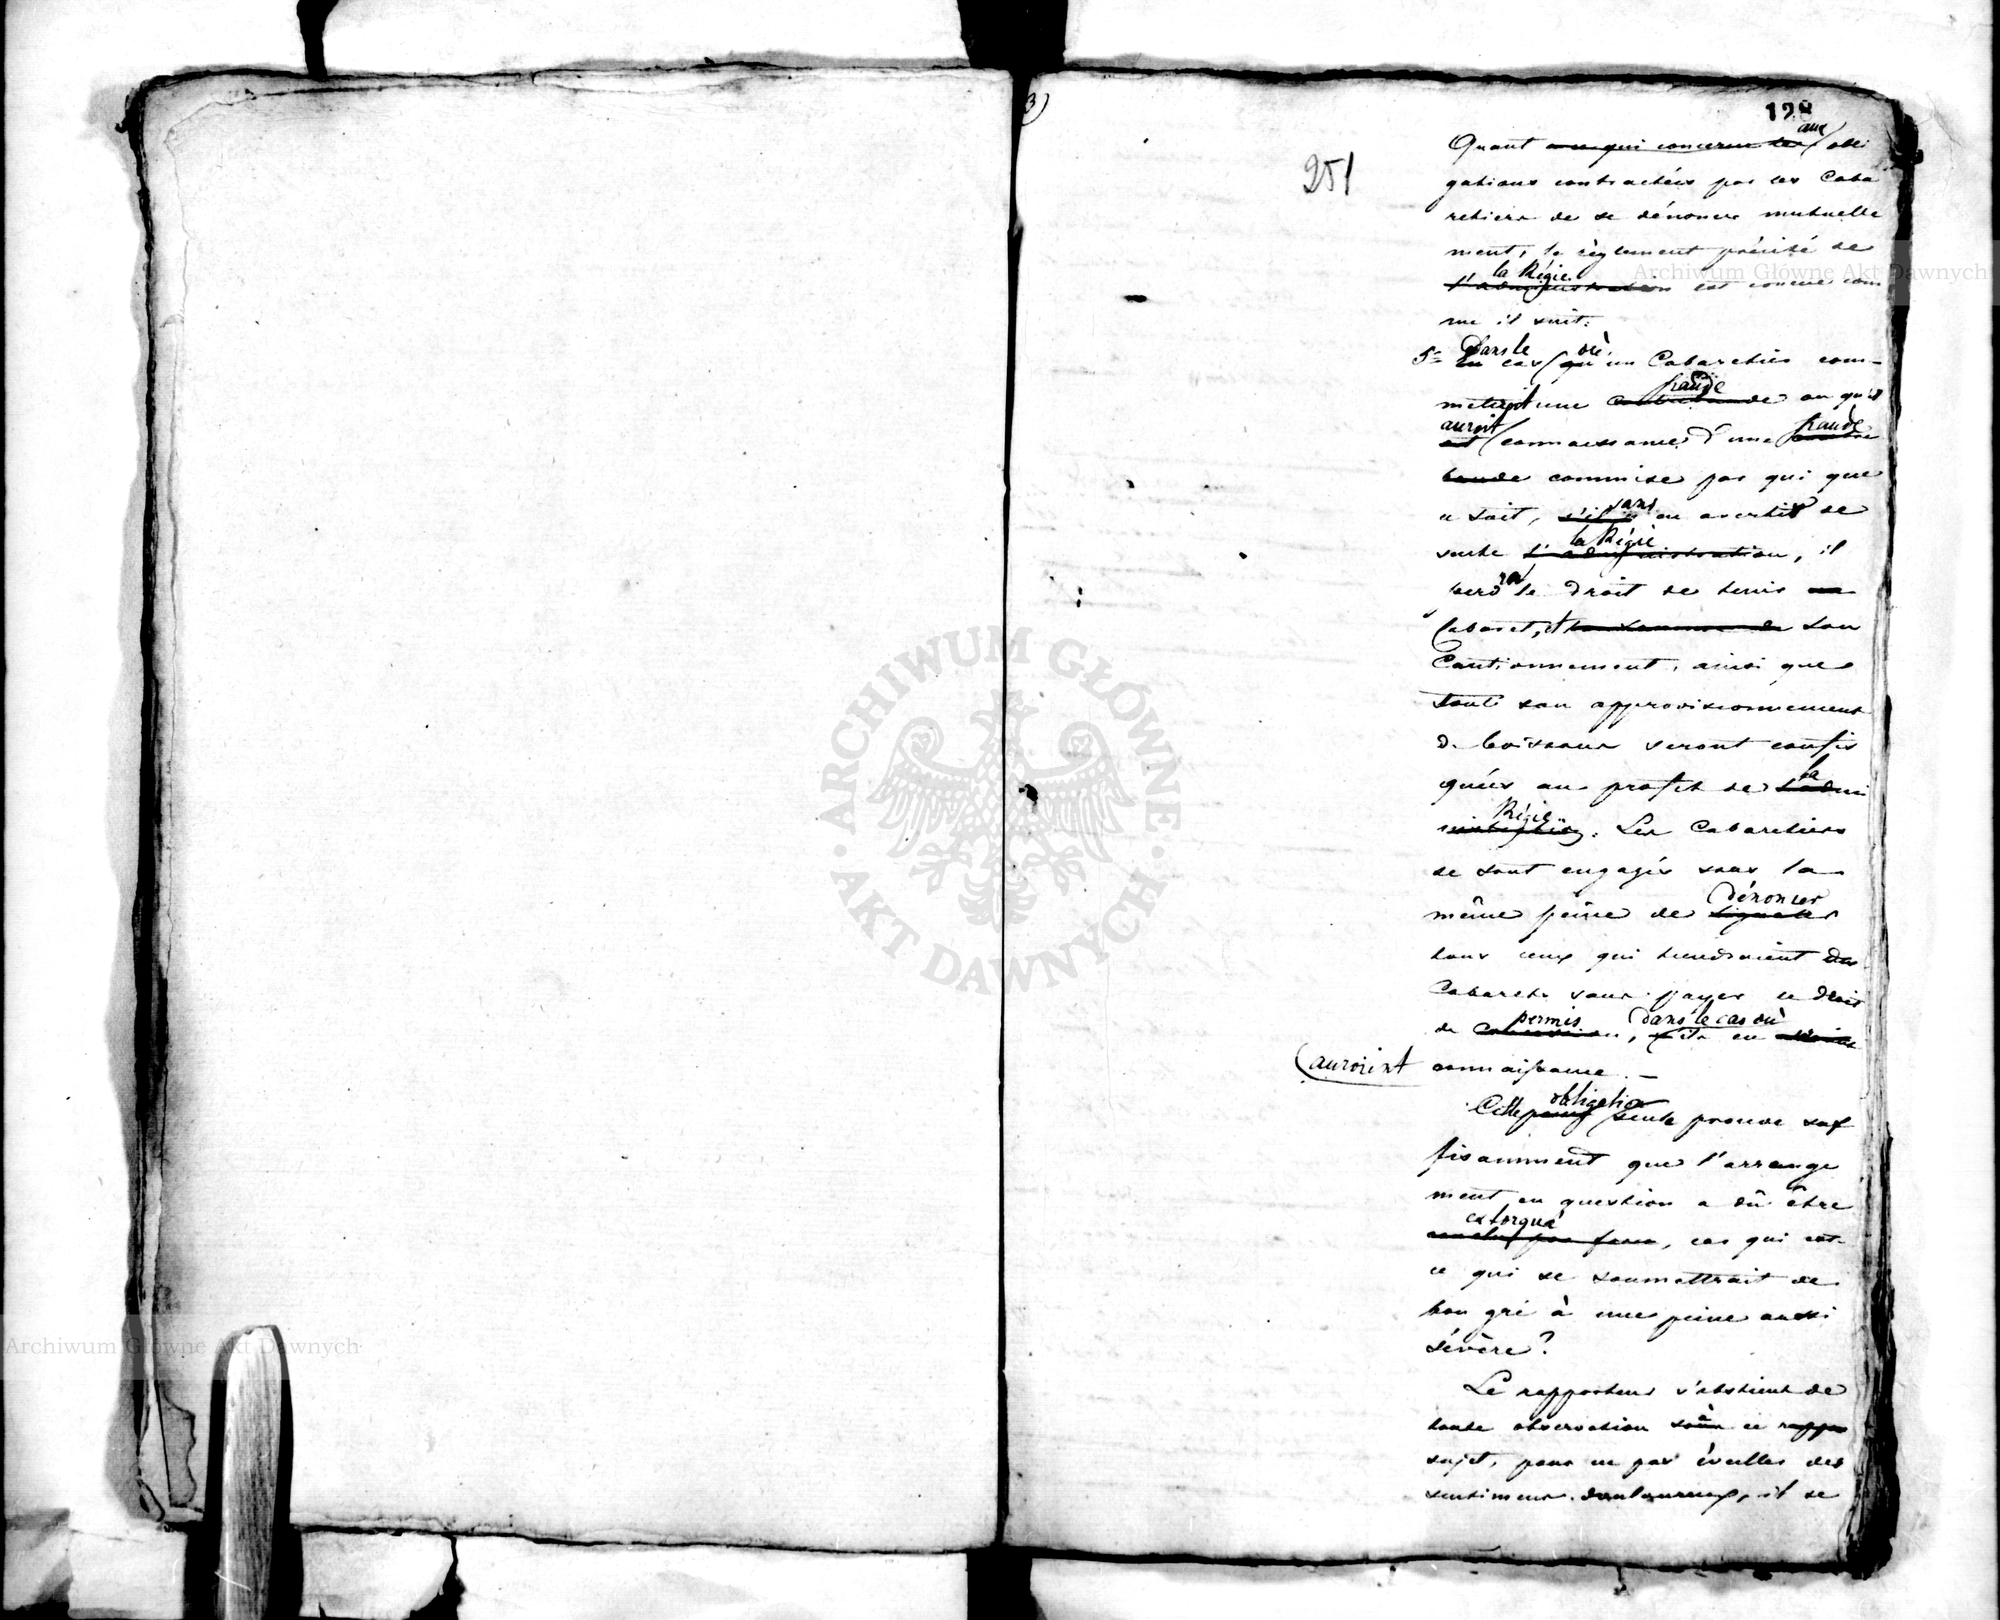 3)
128
251
aux
Quant ~~a ce qui concerne les~~ obli
gations contractées par les Caba
retiers de se dénoncer mutuelle
ment, le règlement précité de
la Régie
~~l'administration~~ est conçue com
me il suit:
Dans le où
5° ~~En~~ cas ~~qu'~~un Cabaretier com-
fraude
met une ~~contrebande~~ ou qu'il
auroit fraude
~~ait~~ connaissance d'une ~~contre~~
~~bande~~ commise par qui que
sans
ce soit, ~~s'il n'~~ en avertir de
la Régie
suite ~~l'administration~~, il
ra
perd le droit de tenir ~~un~~
Cabaret, et ~~la somme de~~ son
Cautionnement, ainsi que
tout son approvisionnement
de boissons seront confis
la
qués au profit de ~~l'admi~~
Régie
~~nistration~~. Les Cabaretiers
se sont engagés sous la
dénoncer
même peine de ~~signaler~~
tous ceux qui tiendraient des
Cabarets sans payer le droit
permis dans le cas où
de ~~~~, ~~s'~~ils en
auroient connaissance. —
obligation
Cette ~~peine~~ seule prouve suf
fisamment que l'arrange
ment en question a dû être
extorqué
~~conclu par force~~, car qui est-
ce qui se soumettrait de
bon gré à une peine aussi
sévère?
Le rapporteur s'abstient de
toute observation à ce ~~rappo~~
sujet, pour ne pas éveiller des
sentimens douloureux, il se
Archiwum Główne Akt Dawnych
ARCHIWUM GŁÓWNE
· AKT DAWNYCH ·
Archiwum Główne Akt Dawnych